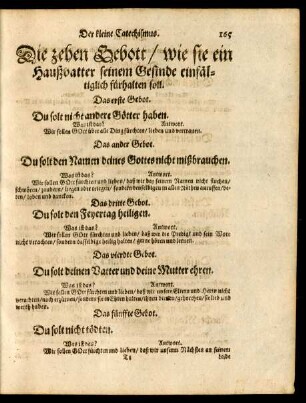 Der kleine Catechismus. 165
Die zehen Gebott / wie sie ein
Haußvatter seinem Gesinde einfäl-
tiglich fürhalten soll.
Das erste Gebot.
Du solt nicht andere Götter haben.
Was ist das? Antwort.
Wir sollen Gott über alle Ding fürchten / lieben und vertrauen.
Das ander Gebot.
Du solt den Namen deines Gottes nicht mißbrauchen.
Was ist das? Antwort.
Wir sollen GOtt fürchten und lieben / daß wir bey seinem Namen nicht fluchen /
schwören / zaubern / liegen oder triegen / sondern denselbigen in allen Nöthen anruffen / be-
ten / loben und dancken.
Das dritte Gebot.
Du solt den Feyertag heiligen.
Was ist das? Antwort.
Wir sollen GOtt fürchten und lieben / daß wir die Predigt und sein Wort
nicht verachten / sondern dasselbige heilig halten / gerne hören und lernen.
Das vierdte Gebot.
Du solt deinen Vatter und deine Mutter ehren.
Was ist das? Antwort.
Wir sollen GOtt fürchten und lieben / daß wir unsere Eltern und Herrn nicht
verachten / noch erzürnen / sondern sie in Ehren halten / ihnen dienen / gehorchen / sie lieb und
werth haben.
Das fünffte Gebot.
Du solt nicht tödten.
Was ist das? Antwort.
Wir sollen GOtt fürchten und lieben / daß wir unserm Nächsten an seinem
Leibe